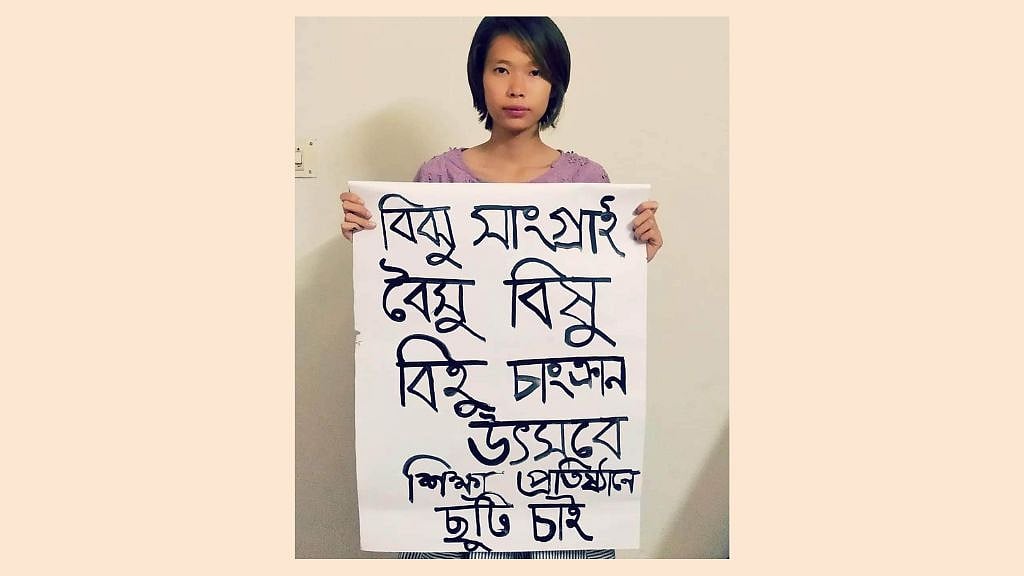 বিঝু সাংগ্রাই
বৈসু বিষু
বিহু চাংক্রান
উৎসবে
শিক্ষা প্রতিষ্ঠানে
ছুটি চাই